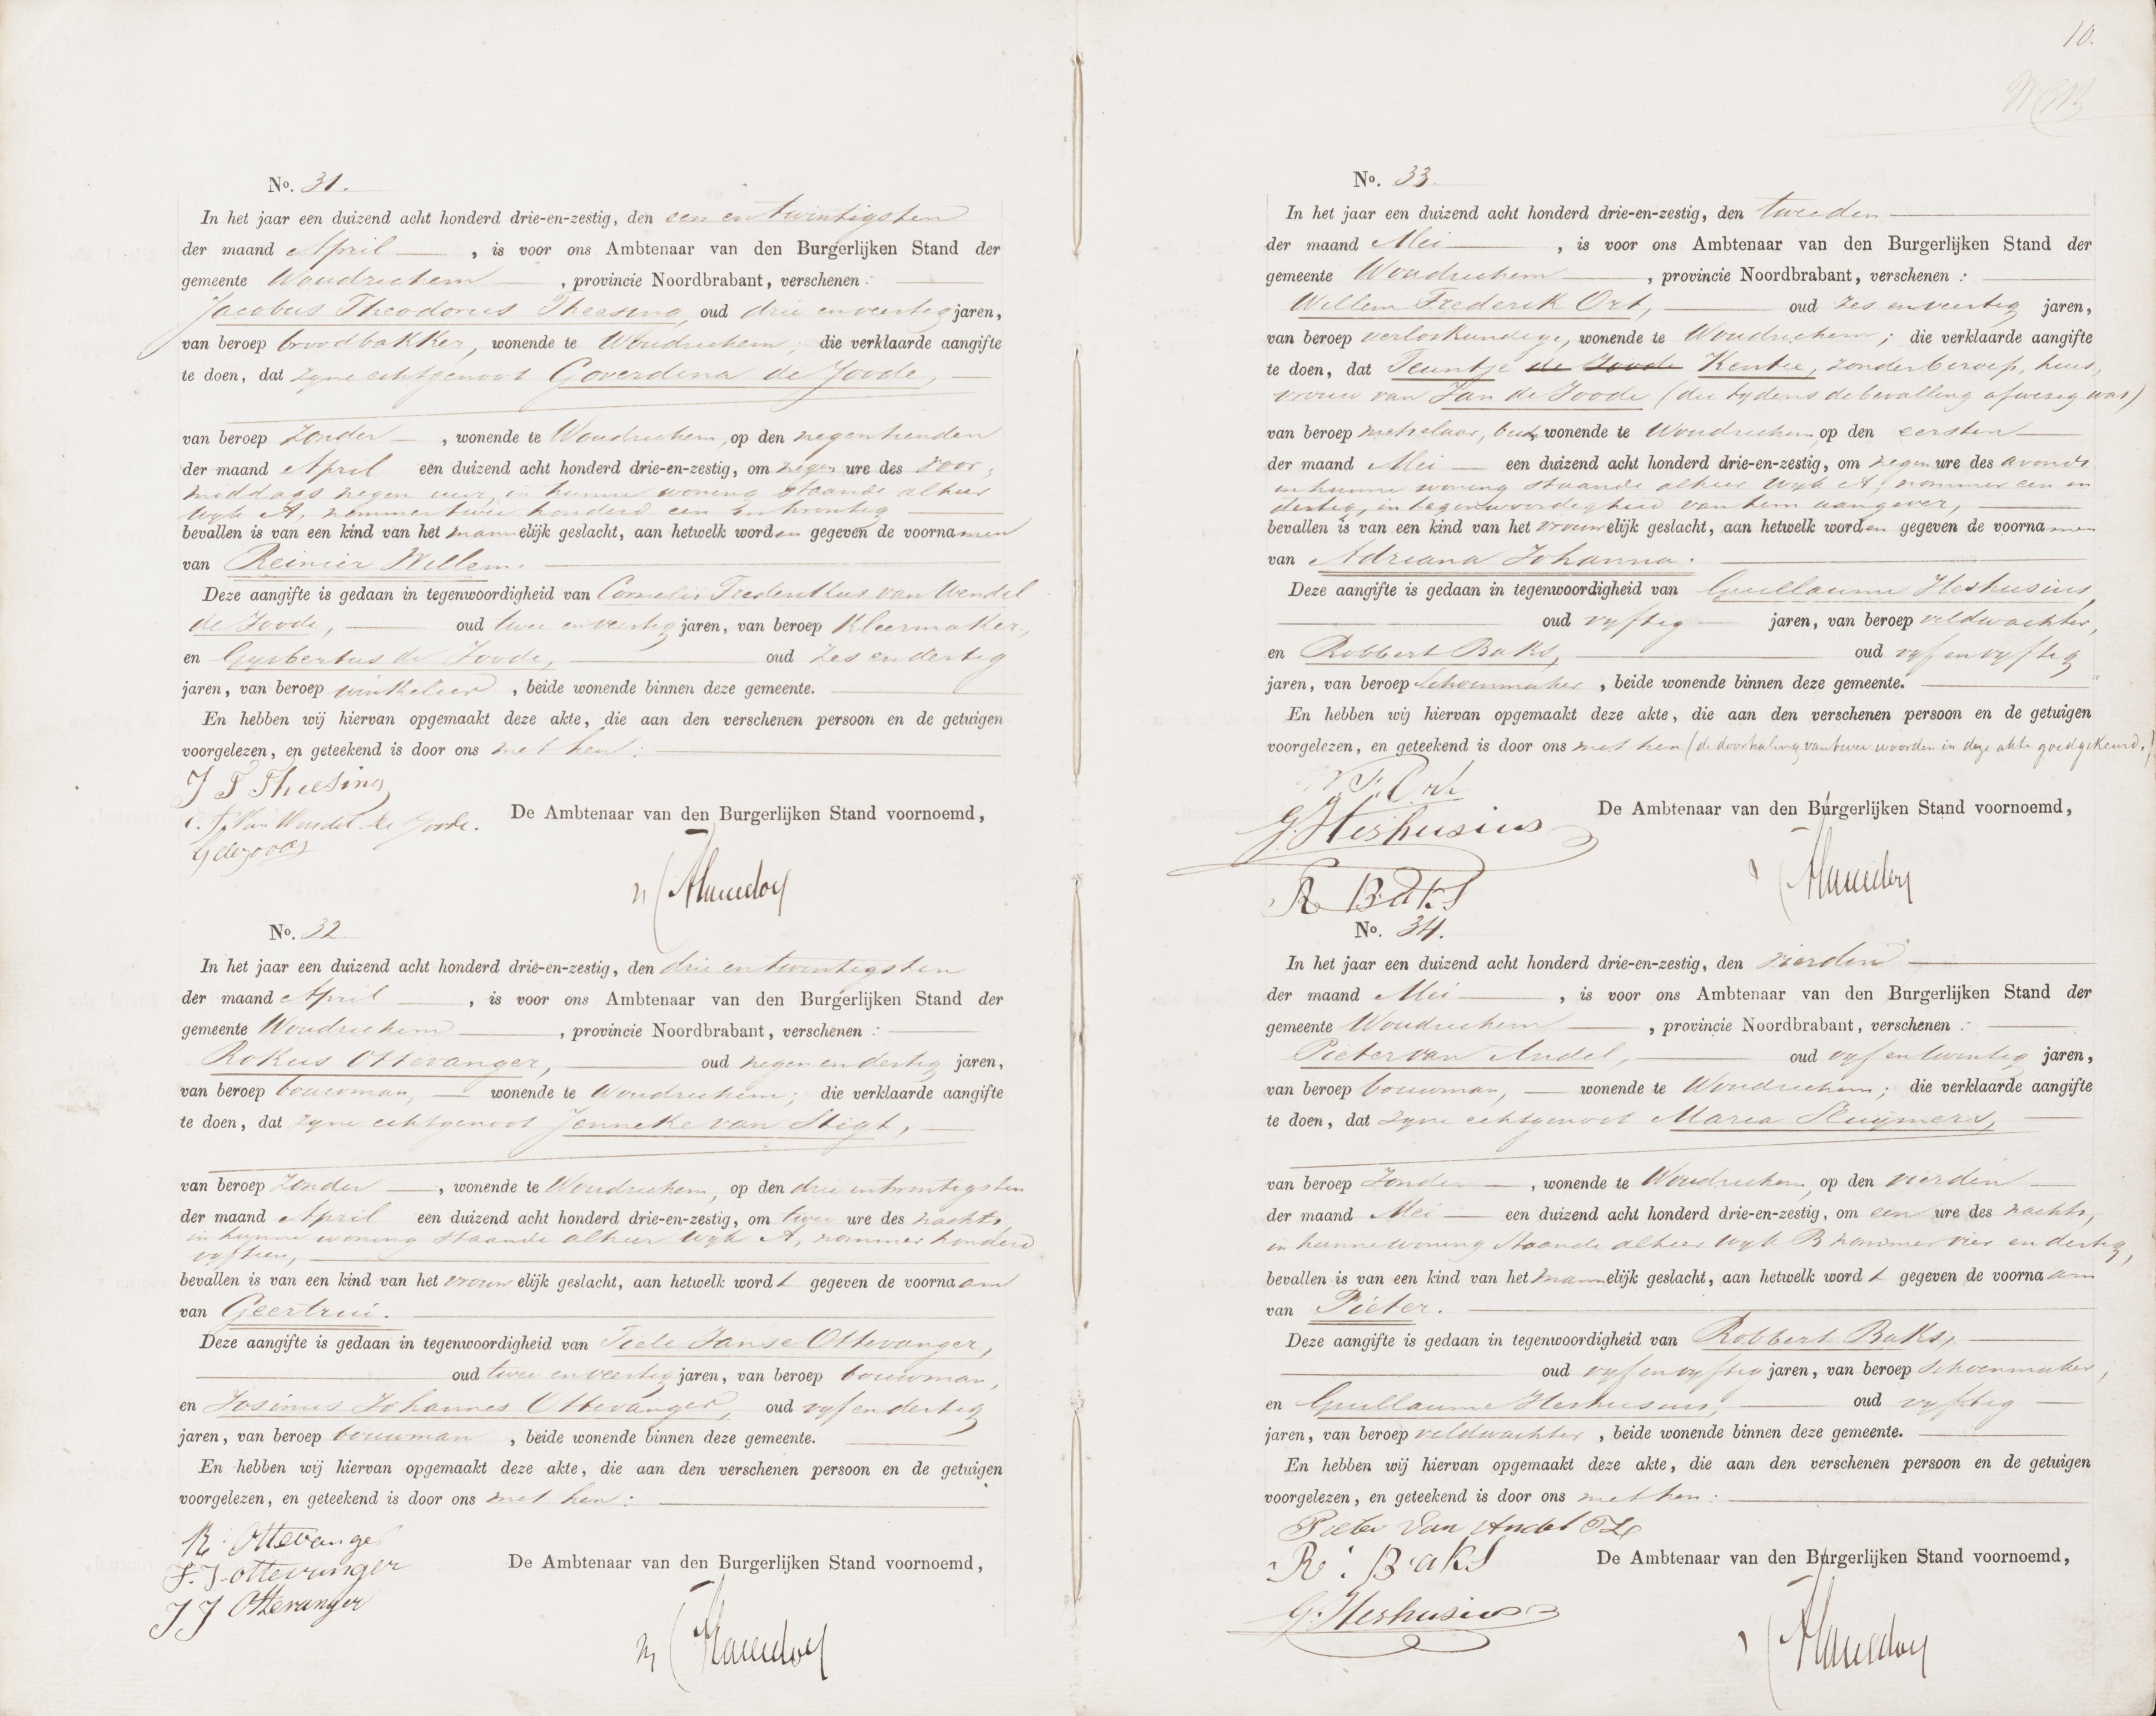 No. 31.
In het jaar een duizend acht honderd drie-en-zestig, den een en twintigsten
der maand April, is voor ons Ambtenaar van den Burgerlijken Stand der
gemeente Woudrichem, provincie Noordbrabant, verschenen:
Jacobus Theodorus Theesing, oud drie en veertig jaren,
van beroep broodbakker, wonende te Woudrichem; die verklaarde aangifte
te doen, dat zyne echtgenoot Goverdina de Joode,
van beroep zonder, wonende te Woudrichem, op den negentienden
der maand April een duizend acht honderd drie-en-zestig, om negen ure des voor,
middags negen uur, in hunne woning staande alhier
wyk A, nommer twee honderd een en twintig
bevallen is van een kind van het mannelijk geslacht, aan hetwelk worden gegeven de voornamen
van Reinier Willem.
Deze aangifte is gedaan in tegenwoordigheid van Cornelis Frederikus van Wendel
de Joode, oud twee en veertig jaren, van beroep Kleermaker,
en Gysbertus de Joode, oud zes en dertig
jaren, van beroep winkelier, beide wonende binnen deze gemeente.
En hebben wij hiervan opgemaakt deze akte, die aan den verschenen persoon en de getuigen
voorgelezen, en geteekend is door ons met hen:
J T Theesing
C. F. Van Wendel de Joode.
G de Joode
De Ambtenaar van den Burgerlijken Stand voornoemd,
No. 32
In het jaar een duizend acht honderd drie-en-zestig, den drie en twintigsten
der maand April, is voor ons Ambtenaar van den Burgerlijken Stand der
gemeente Woudrichem, provincie Noordbrabant, verschenen:
Rokus Ottevanger, oud negen en dertig jaren,
van beroep bouwman, wonende te Woudrichem; die verklaarde aangifte
te doen, dat zyne echtgenoot Jenneke van Stigt,
van beroep zonder, wonende te Woudrichem, op den drie en twintigsten
der maand April een duizend acht honderd drie-en-zestig, om twee ure des nachts,
in hunne woning staande alhier wyk A, nommer honderd
vyftien,
bevallen is van een kind van het vrouwelijk geslacht, aan hetwelk wordt gegeven de voornaam
van Geertrui.
Deze aangifte is gedaan in tegenwoordigheid van Fiele Janse Ottevanger,
oud twee en veertig jaren, van beroep bouwman,
en Josinus Johannes Ottevanger, oud vyf en dertig
jaren, van beroep bouwman, beide wonende binnen deze gemeente.
En hebben wij hiervan opgemaakt deze akte, die aan den verschenen persoon en de getuigen
voorgelezen, en geteekend is door ons met hen:
R. Ottevanger
F. J. ottevanger
J J Ottevanger
De Ambtenaar van den Burgerlijken Stand voornoemd,
10.
No. 33.
In het jaar een duizend acht honderd drie-en-zestig, den tweeden
der maand Mei, is voor ons Ambtenaar van den Burgerlijken Stand der
gemeente Woudrichem, provincie Noordbrabant, verschenen:
Willem Frederik Ort, oud zes en veertig jaren,
van beroep verloskundige, wonende te Woudrichem; die verklaarde aangifte
te doen, dat Teuntje de Joode Kentie, zonder beroep, huis,
vrouw van Jan de Joode (die tydens de bevalling afwezig was)
van beroep metselaar, beide wonende te Woudrichem op den eersten
der maand Mei een duizend acht honderd drie-en-zestig, om negen ure des avonds
in hunne woning staande alhier wyk A, nommer een en
dertig, in tegenwoordigheid van hem aangever,
bevallen is van een kind van het vrouwelijk geslacht, aan hetwelk worden gegeven de voornamen
van Adriana Johanna.
Deze aangifte is gedaan in tegenwoordigheid van Guillaume Heshusius,
oud vyftig jaren, van beroep veldwachter,
en Robbert Baks, oud vyf en vyftig
jaren, van beroep Schoenmaker, beide wonende binnen deze gemeente.
En hebben wij hiervan opgemaakt deze akte, die aan den verschenen persoon en de getuigen
voorgelezen, en geteekend is door ons met hen (de doorhaling van twee woorden in deze akte goedgekeurd.)
W F. Ort
G. Heshusius
R Baks
De Ambtenaar van den Burgerlijken Stand voornoemd,
No. 34.
In het jaar een duizend acht honderd drie-en-zestig, den vierden
der maand Mei, is voor ons Ambtenaar van den Burgerlijken Stand der
gemeente Woudrichem, provincie Noordbrabant, verschenen:
Pieter van Andel, oud vyf en twintig jaren,
van beroep bouwman, wonende te Woudrichem; die verklaarde aangifte
te doen, dat zyne echtgenoot Maria Sluijmers,
van beroep Zonder, wonende te Woudrichem, op den vierden
der maand Mei een duizend acht honderd drie-en-zestig, om een ure des nachts,
in hunne woning staande alhier wyk B nommer vier en dertig,
bevallen is van een kind van het mannelijk geslacht, aan hetwelk wordt gegeven de voornaam
van Pieter.
Deze aangifte is gedaan in tegenwoordigheid van Robbert Baks,
oud vyf en vyftig jaren, van beroep schoenmaker,
en Guillaume Heshusius, oud vyftig
jaren, van beroep veldwachter, beide wonende binnen deze gemeente.
En hebben wij hiervan opgemaakt deze akte, die aan den verschenen persoon en de getuigen
voorgelezen, en geteekend is door ons met hen:
Pieter Van Andel
R: Baks
G. Heshusius
De Ambtenaar van den Burgerlijken Stand voornoemd,